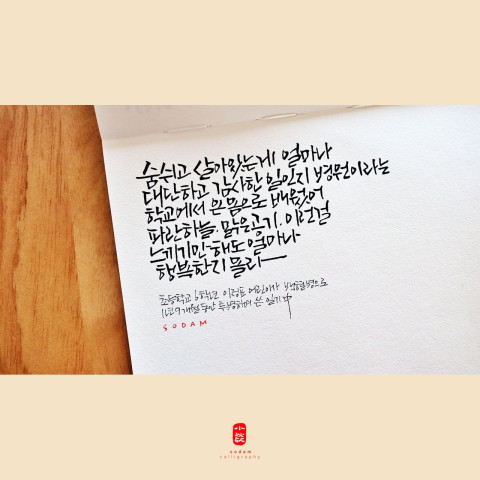 숨쉬고 살아있는게 얼마나
대단하고 감사한 일인지 병원이라는
학교에서 온 몸으로 배웠어
파란하늘. 맑은공기. 이런걸
느끼기만해도 얼마나
행복한지 몰라
초등학교 6학년 이정표 어린이가 백혈병으로
1년9개월동안 투병하며 쓴 일기 中
SODAM
sodam
calligraphy